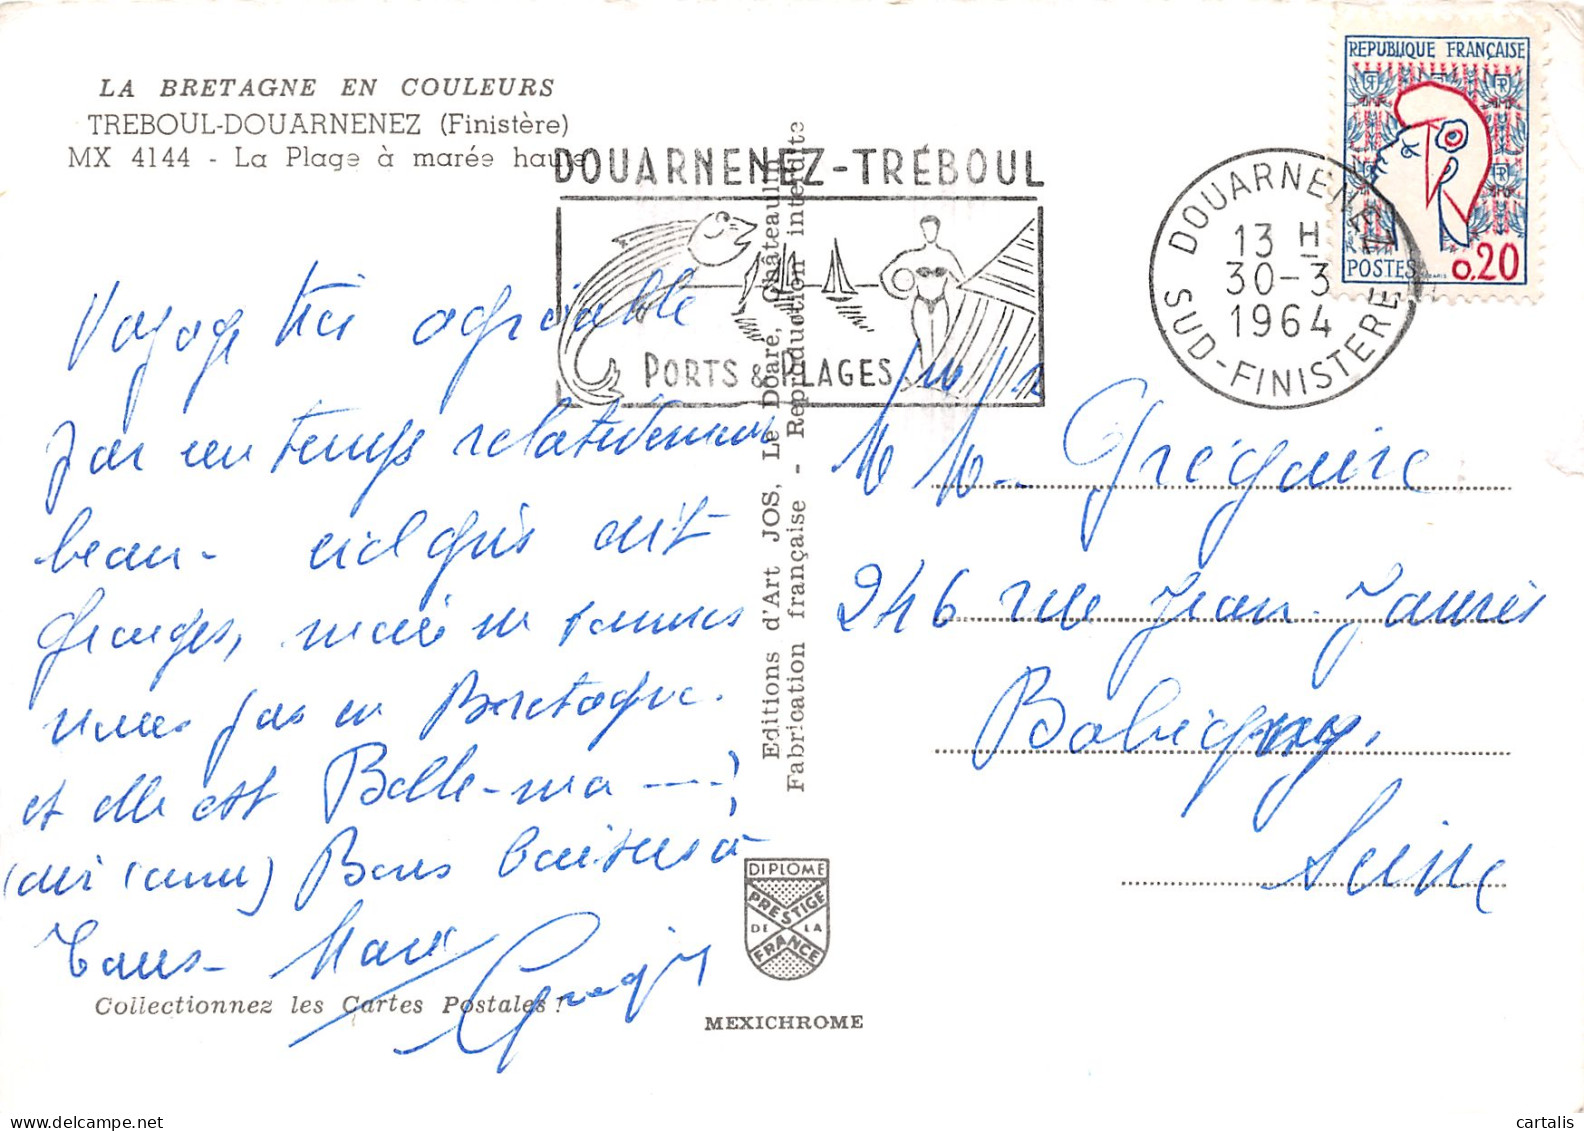 LA BRETAGNE EN COULEURS
TREBOUL-DOUARNENEZ (Finistère)
MX 4144 - La Plage à marée haute
DOUARNENEZ-TRÉBOUL
PORTS & PLAGES
DOUARNENEZ
13 H
30-3
1964
SUD-FINISTERE
REPUBLIQUE FRANÇAISE
POSTES 0,20
Voyage très agréable
par un temps relativement
beau - ciel gris dit
Georges, mais ne sommes
nous pas en Bretagne.
et elle est Belle-ma
Bons baisers à
Tous - Marie
Editions d'Art JOS, Le Doaré, Châteaulin
Fabrication française - Reproduction interdite
M Mme Grégoire
246 rue Jean Jaurès
Bobigny,
Seine
DIPLOME
PRESTIGE
DE LA
FRANCE
Collectionnez les Cartes Postales !
MEXICHROME
cartalis